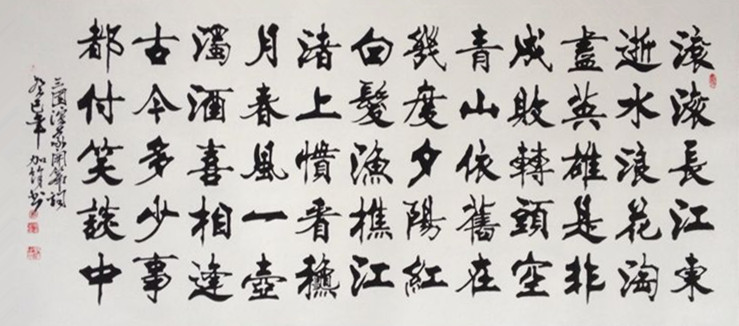 滾滾長江東
逝水浪花淘
盡英雄是非
成敗轉頭空
青山依舊在
幾度夕陽紅
白髮漁樵江
渚上慣看穐
月春風一壺
濁酒喜相逢
古今多少事
都付笑談中
三国演義開篇詞
癸巳年